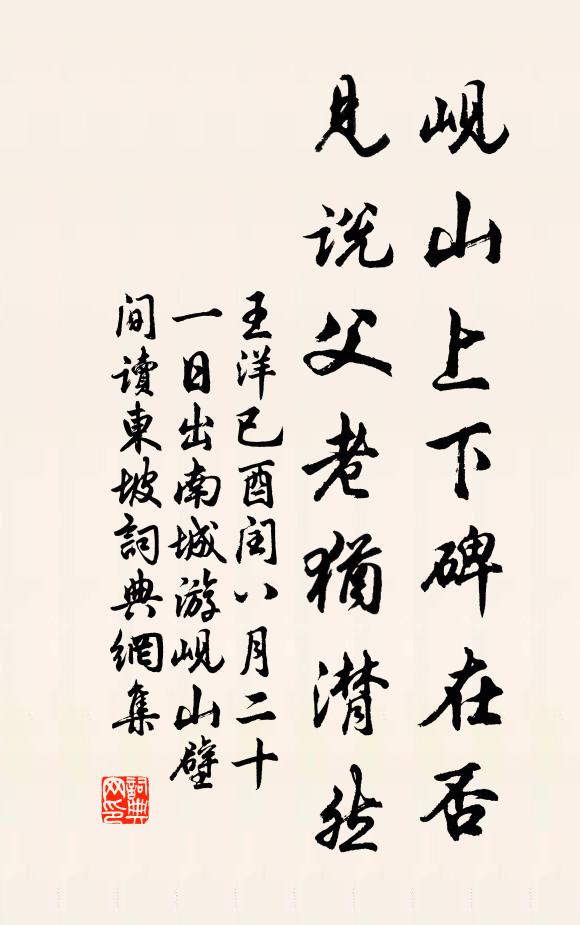 岘山上下碑在否
见说父老犹潸然
王洋己酉闰八月二十
一日出南城游岘山壁
间读東坡詞典網集
詞典网印